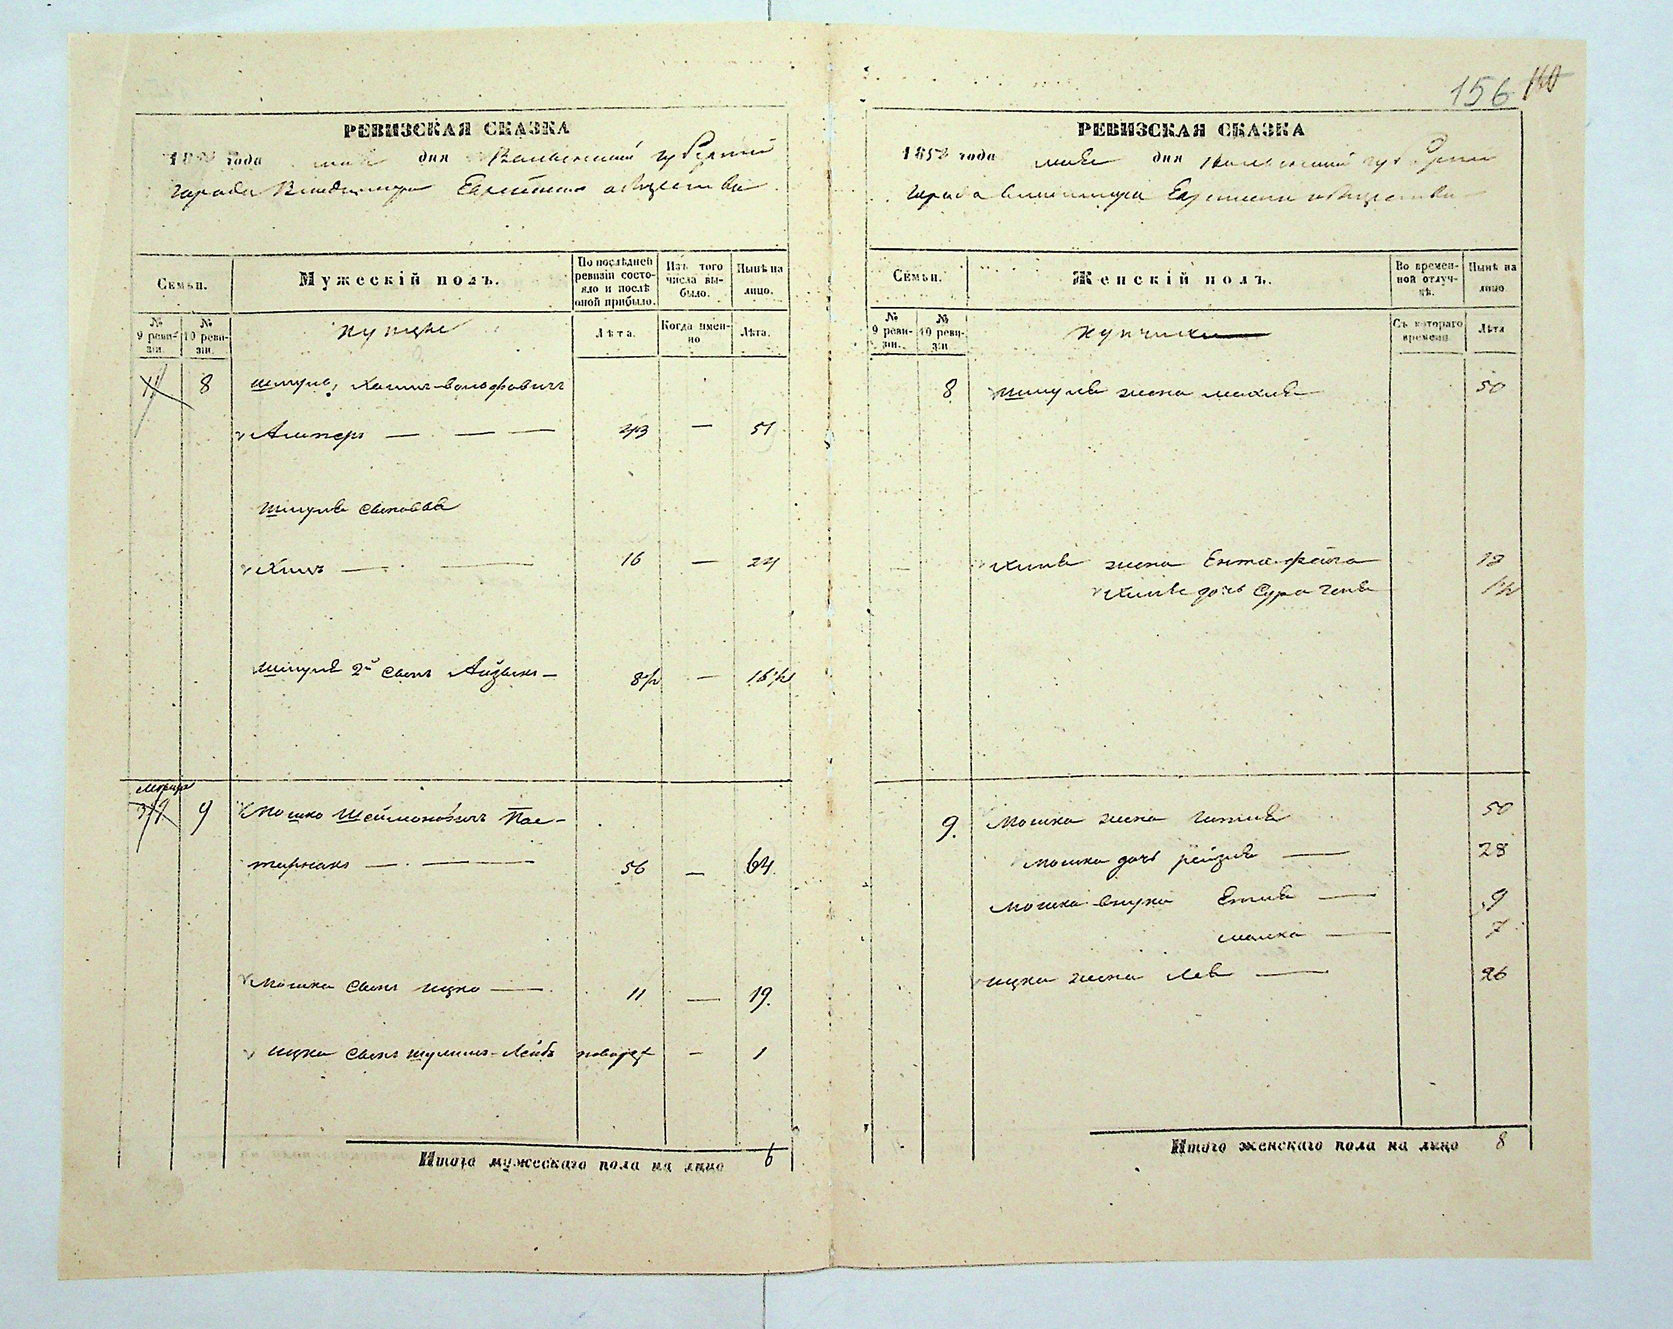 156 160
РЕВИЗСКАЯ СКАЗКА
1858 года мая дня Волынской губернии
города Владимира Еврейского общества
Семьи.
Мужескій полъ.
По послѣдней ревизіи состояло и послѣ оной прибыло.
Изъ того числа выбыло.
Нынѣ на лицо.
№ 9 ревизіи.
№ 10 ревизіи.
купцы
Лѣта.
Когда именно
Лѣта.
11 8 Шмуль Хаимъ-Вольфовичъ
Альтеръ — — — 43 — 51
Шмуля сыновья
— 16 — 24
Шмуля 2й сынъ Айзикъ — 8½ — 16½
9 Мошко Шеймоновичъ Пас-
тернакъ — — 56 — 64
Мошка сынъ Ицко — 11 — 19.
Ицка сынъ Шулимъ-Лейбъ — 1
Итого мужескаго пола на лицо 6
РЕВИЗСКАЯ СКАЗКА
1858 года мая дня Волынской губернии
города Владимира Еврейского общества
Семьи.
Женскій полъ.
Во временной отлучкѣ.
Нынѣ на лицо
№ 9 ревизіи.
№ 10 ревизіи
купчихи
Съ котораго времени
Лѣта
8 Шмуля жена 50
жена Ента-Фейга
дочь Сура 1½
9. Мошка жена 50
Мошка дочь Рейзя — 28
Мошка внука — 9
Малка — 7
Ицка жена Лея — 26
Итого женскаго пола на лицо 8